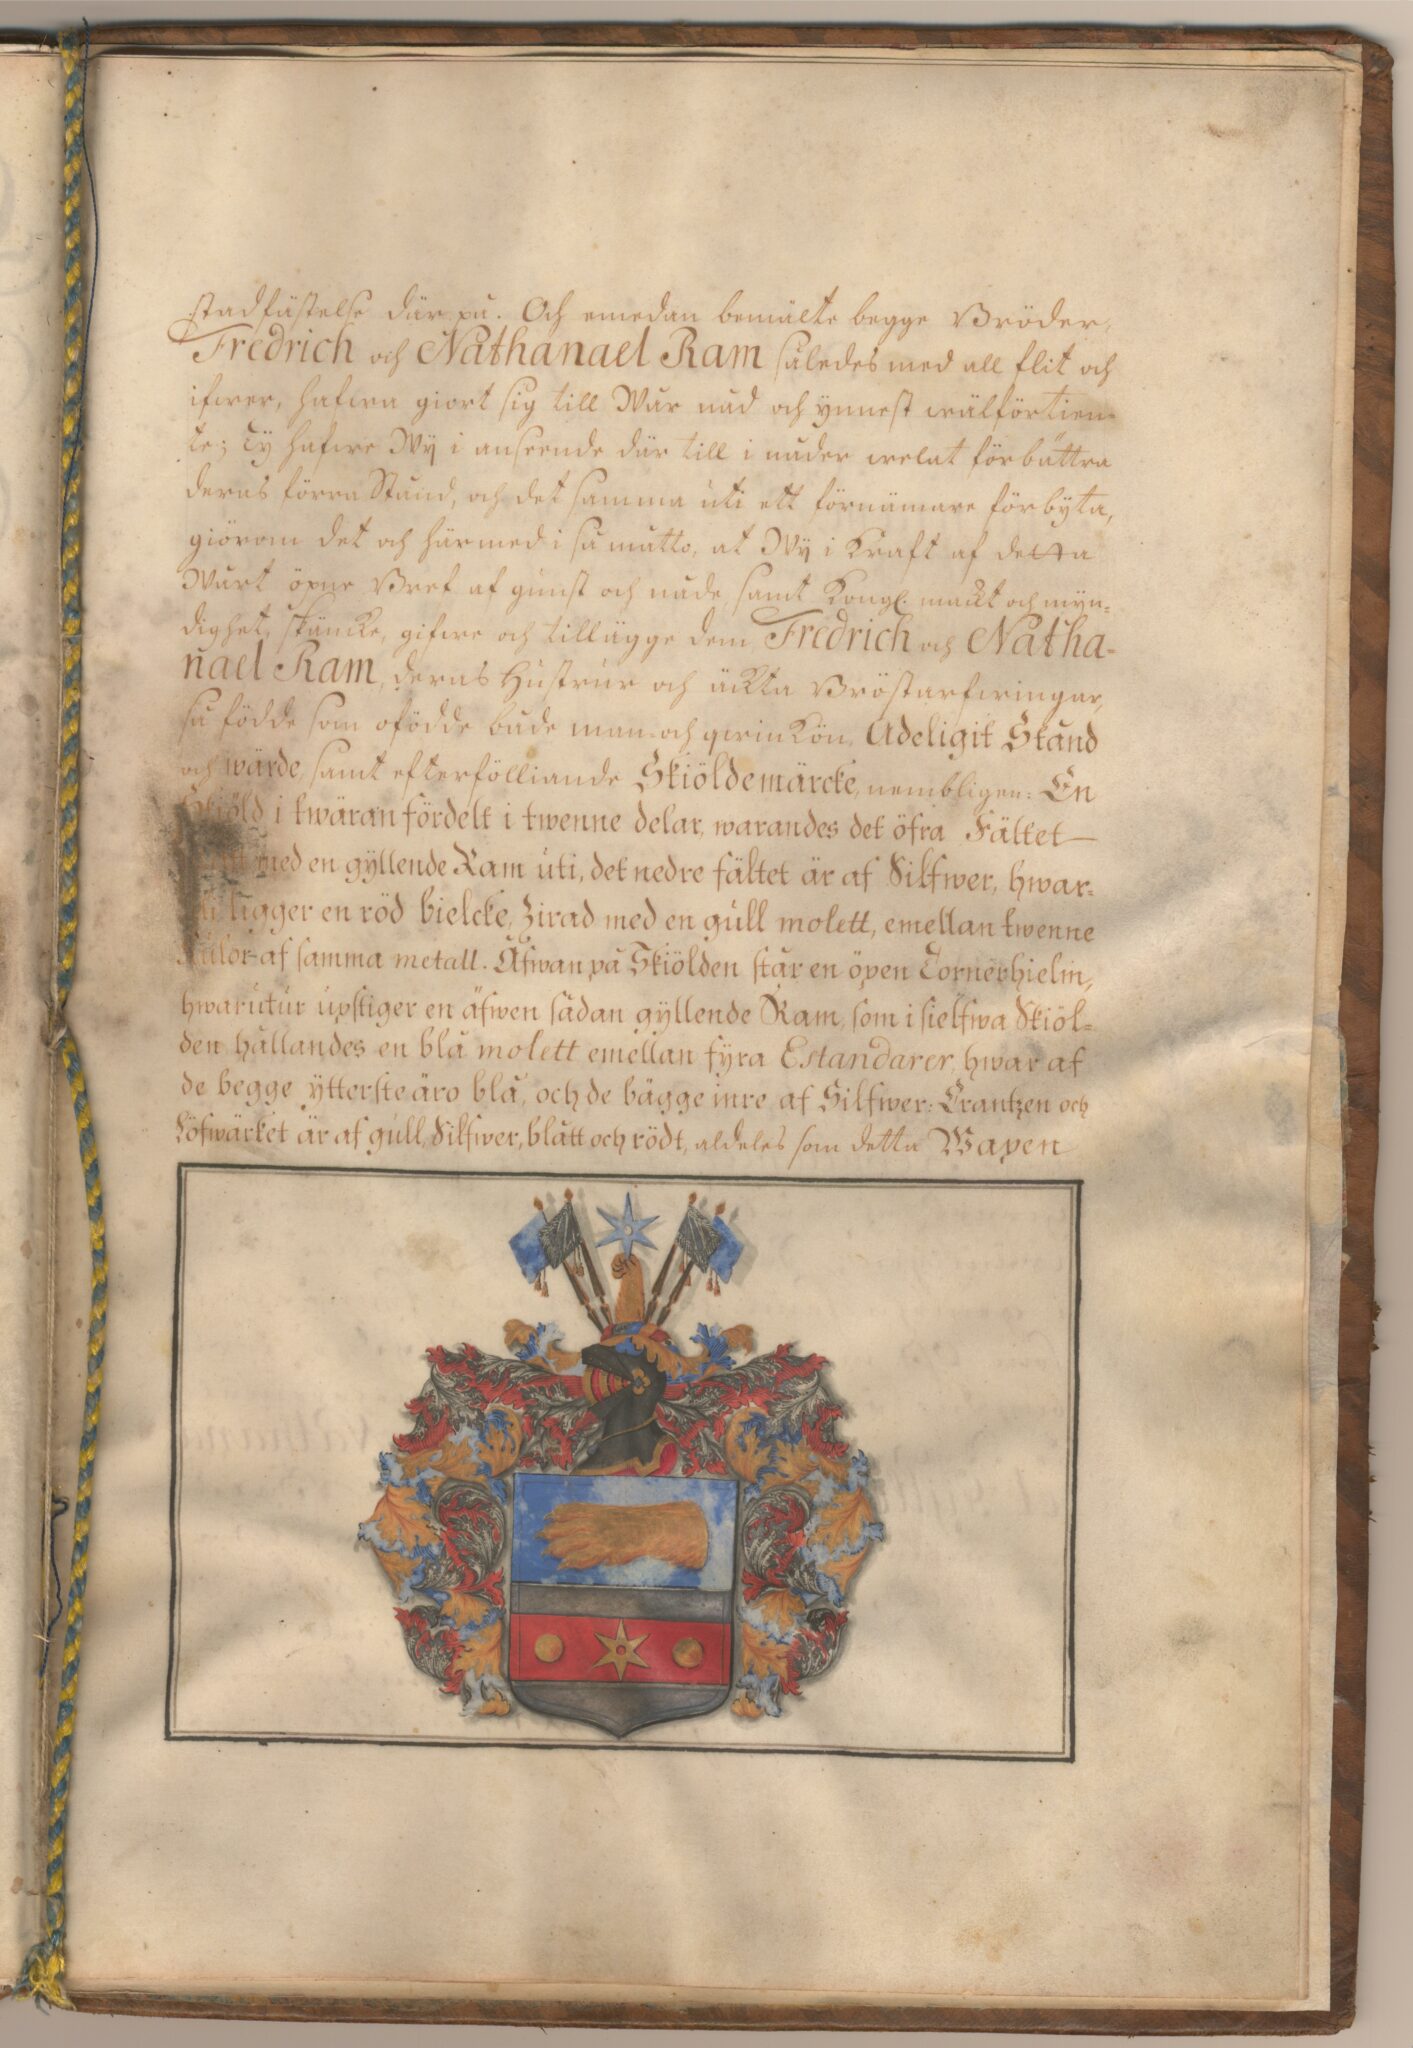 stadfästelse där på. Och emedan bemälte begge Bröder,
Fredrich och Nathanael Ram således med all flit och
ifwer, hafwa giort sig till Wår nåd och ynnest wälförtien-
te; Ty hafwe Wÿ i anseende där till i nåder welat förbättra
deras förra Stånd, och det samma uti ett förnämare förbyta,
giörom det och härmed i så måtto, at Wÿ i Kraft af detta
Wårt öpne Bref af gunst och nåde, samt Kongl. mackt och myn-
dighet, skäncke, gifwe och tillägge dem Fredrich och Natha-
nael Ram, deras Hustrur och äckta Bröstarfwingar,
så födde som ofödde både man- och qwinkön, Adeligit Stånd
och wärde, samt efterfölliande Skiöldemärcke, nembligen: En
Skiöld i twäran fördelt i twenne delar, warandes det öfra Fältet
blått med en gyllende Ram uti, det nedre fältet är af Silfwer, hwar-
uti ligger en röd bielcke, Zirad med en gull molett, emellan twenne
Kulor af samma metall. Åfwan på Skiölden står en öpen Tornerhielm,
hwarutur upstiger en äfwen sådan gyllende Ram, som i sielfwa Skiöl-
den hållandes en blå molett emellan fyra Estandarer, hwar af
de begge ytterste äro blå, och de bägge inre af Silfwer: Crantzen och
Löfwärket är af gull, Silfwer, blått och rödt, aldeles som detta Wapen